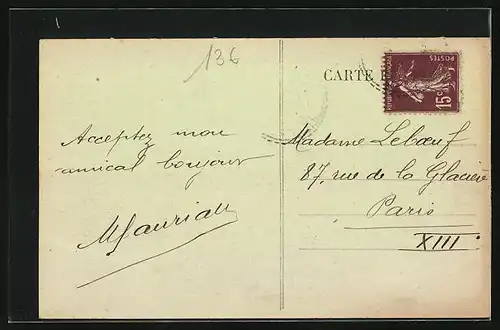 136
CARTE
POSTES
15c
Acceptez mon
amical bonjour
Madame Lebœuf
87, rue de la Glacière
Paris
XIII